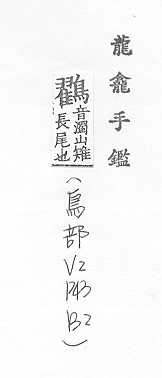 龍龕手鑑
鸐
音濁山雉
長尾也
(鳥部 V2
B2)